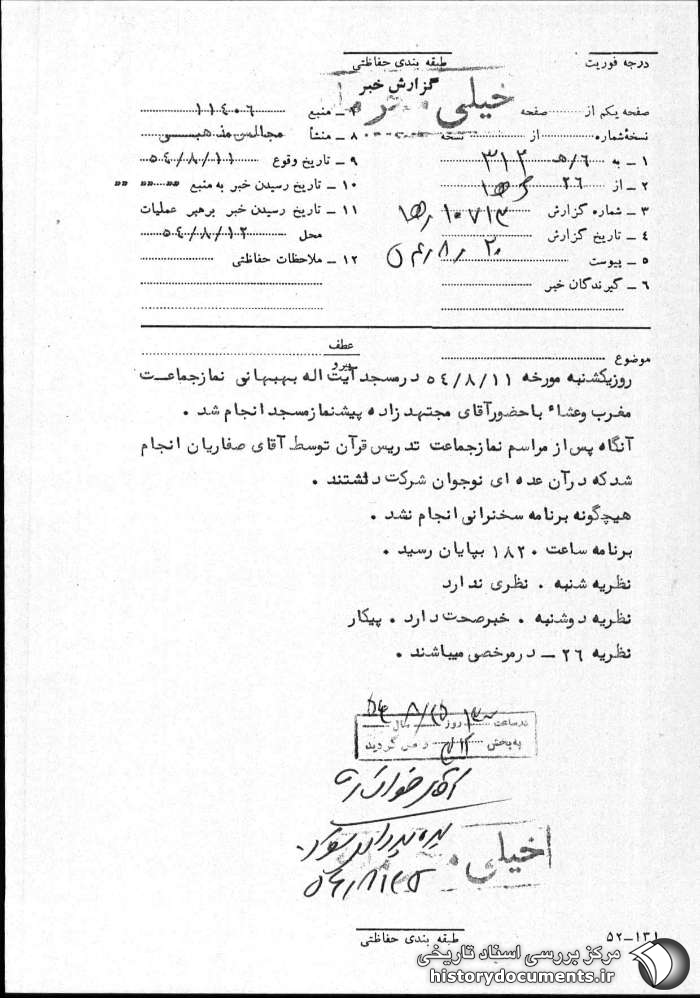 درجه فوریت
طبقه بندی حفاظتی
گزارش خبر
خیلی محرمانه
صفحه یکم از صفحه
نسخهٔ شماره از نسخه
۱ ـ به ۶/هـ ۳۱۲
۲ ـ از ۲۶ هـ
۳ ـ شماره گزارش ۱۰۷۱۳
۴ ـ تاریخ گزارش ۲۰
۵ ـ پیوست
۶ ـ گیرندگان خبر
۷ ـ منبع ۱۱۴۰۶
۸ ـ منشأ مجالس مذهبی
۹ ـ تاریخ وقوع ۵۴/۸/۱۱
۱۰ ـ تاریخ رسیدن خبر به منبع " " "
۱۱ ـ تاریخ رسیدن خبر برهبر عملیات
محل ۵۴/۸/۱۲
۱۲ ـ ملاحظات حفاظتی
موضوع
عطف
پیرو
روزیکشنبه مورخه ۵۴/۸/۱۱ درمسجدآیت اله بهبهانی نمازجماعت
مغرب وعشاء باحضورآقای مجتهدزاده پیشنمازمسجدانجام شد .
آنگاه پس از مراسم نمازجماعت تدریس قرآن توسط آقای صفاریان انجام
شدکه درآن عده ای نوجوان شرکت داشتند .
هیچگونه برنامه سخنرانی انجام نشد .
برنامه ساعت ۱۸۲۰ بپایان رسید .
نظریه شنبه . نظری ندارد
نظریه دوشنبه . خبرصحت دارد . پیکار
نظریه ۲۶ ـ درمرخصی میباشند .
در ساعت روز سال
به بخش ۳۱۲ وارد می گردید
خیلی
طبقه بندی حفاظتی
۵۲ـ۱۳۱
مرکز بررسی اسناد تاریخی
historydocuments.ir